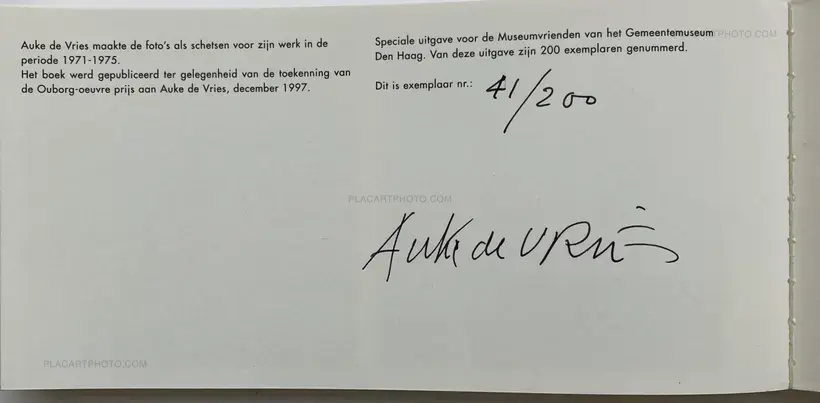 Auke de Vries maakte de foto's als schetsen voor zijn werk in de
periode 1971-1975.
Het boek werd gepubliceerd ter gelegenheid van de toekenning van
de Ouborg-oeuvre prijs aan Auke de Vries, december 1997.
Speciale uitgave voor de Museumvrienden van het Gemeentemuseum
Den Haag. Van deze uitgave zijn 200 exemplaren genummerd.
Dit is exemplaar nr.: 41/200
Auke de Vries
PLACARTPHOTO.COM
PLACARTPHOTO.COM
PHOTO.COM